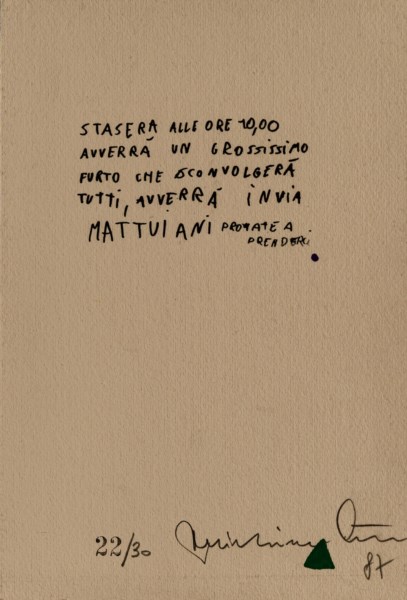 STASERA ALLE ORE 10,00
AVVERRÁ UN GROSSISSIMO
FURTO CHE SCONVOLGERÁ
TUTTI, AVVERRÁ IN VIA
MATTUIANI PROVATE A
PRENDERCI.
22/30
87